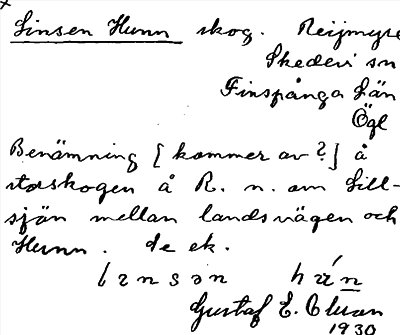 Linsen Hunn skog. Reijmyre
Skedevi sn
Finspånga Län
Ögl
Benämning [kommer av?] å
storskogen å R. n. om Lill-
sjön mellan landsvägen och
Hunn. de ek.
Gustaf E.
1930